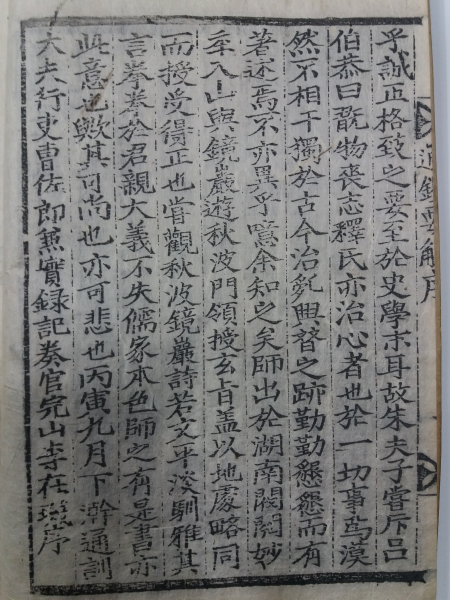 乎誠正格致之要至於史學末耳故朱夫子嘗斥呂
伯恭曰翫物喪志釋氏亦治心者也於一切事焉漠
然不相干獨於古今治乱興替之跡勤勤懇懇而有
著述焉不亦異乎噫余知之矣師出於湖南閥閱妙
年入山與鏡巖遊秋波門領授玄旨盖以地處略同
而授受得正也嘗觀秋波鏡巖詩若文平淡馴雅其
言拳拳於君親大義不失儒家本色師之有是書亦
此意也歟其可尚也亦可悲也丙寅九月下澣通訓
大夫行吏曹佐郎兼實錄記奏官完山李在璣序
通鑑要解序